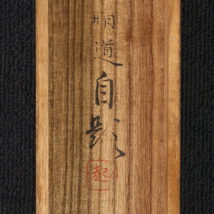 明道
自題